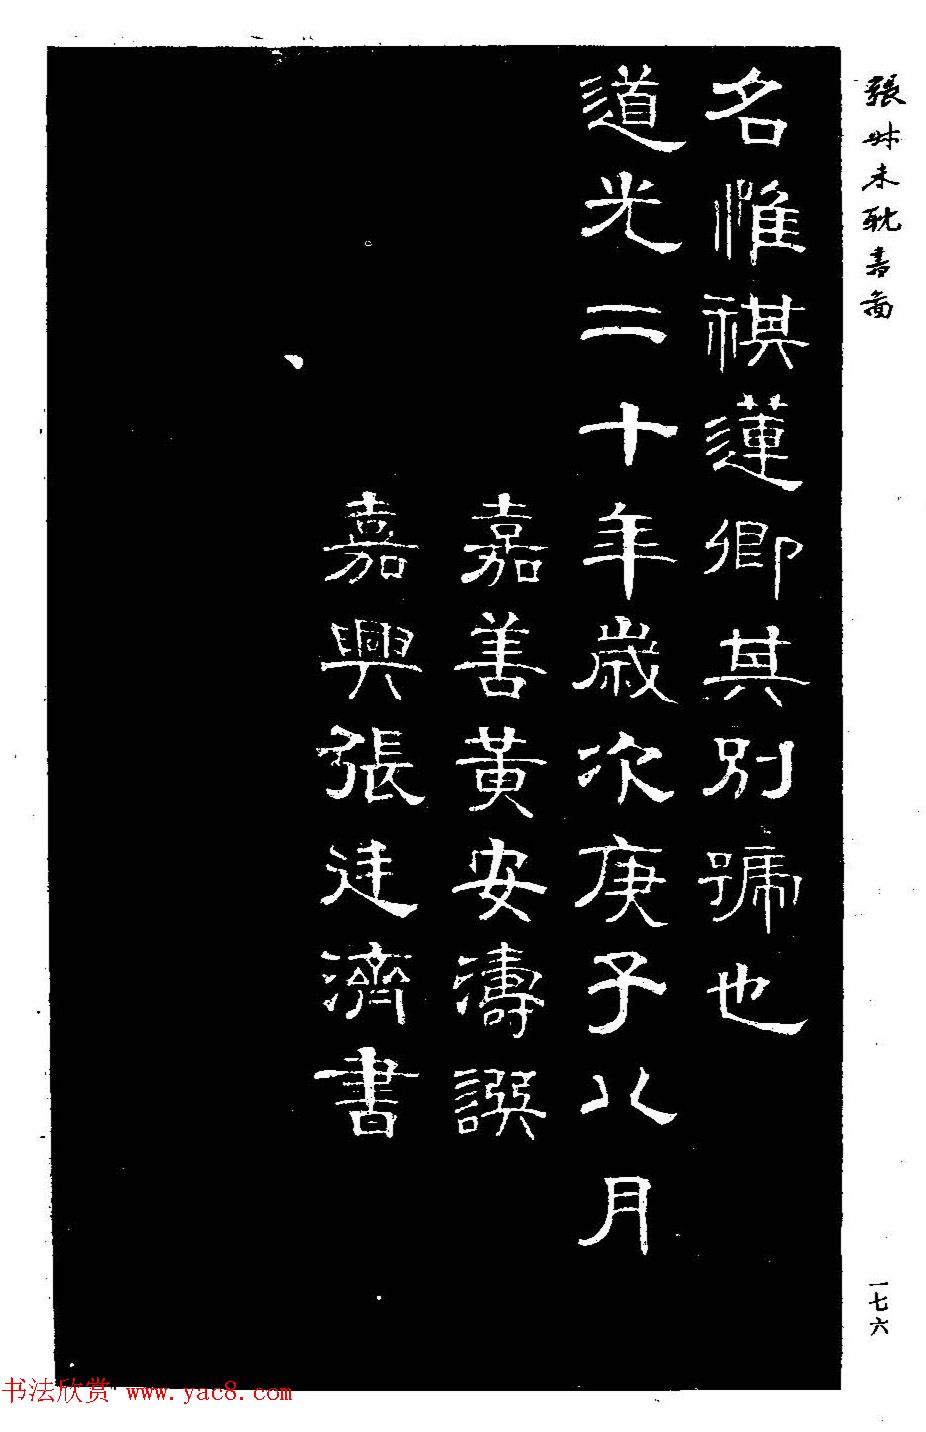 張叔未耽書圖
名惟祺蓮卿其別號也
道光二十年歲次庚子八月
嘉善黃安濤譔
嘉興張廷濟書
一七六
书法欣赏 www.yac8.com